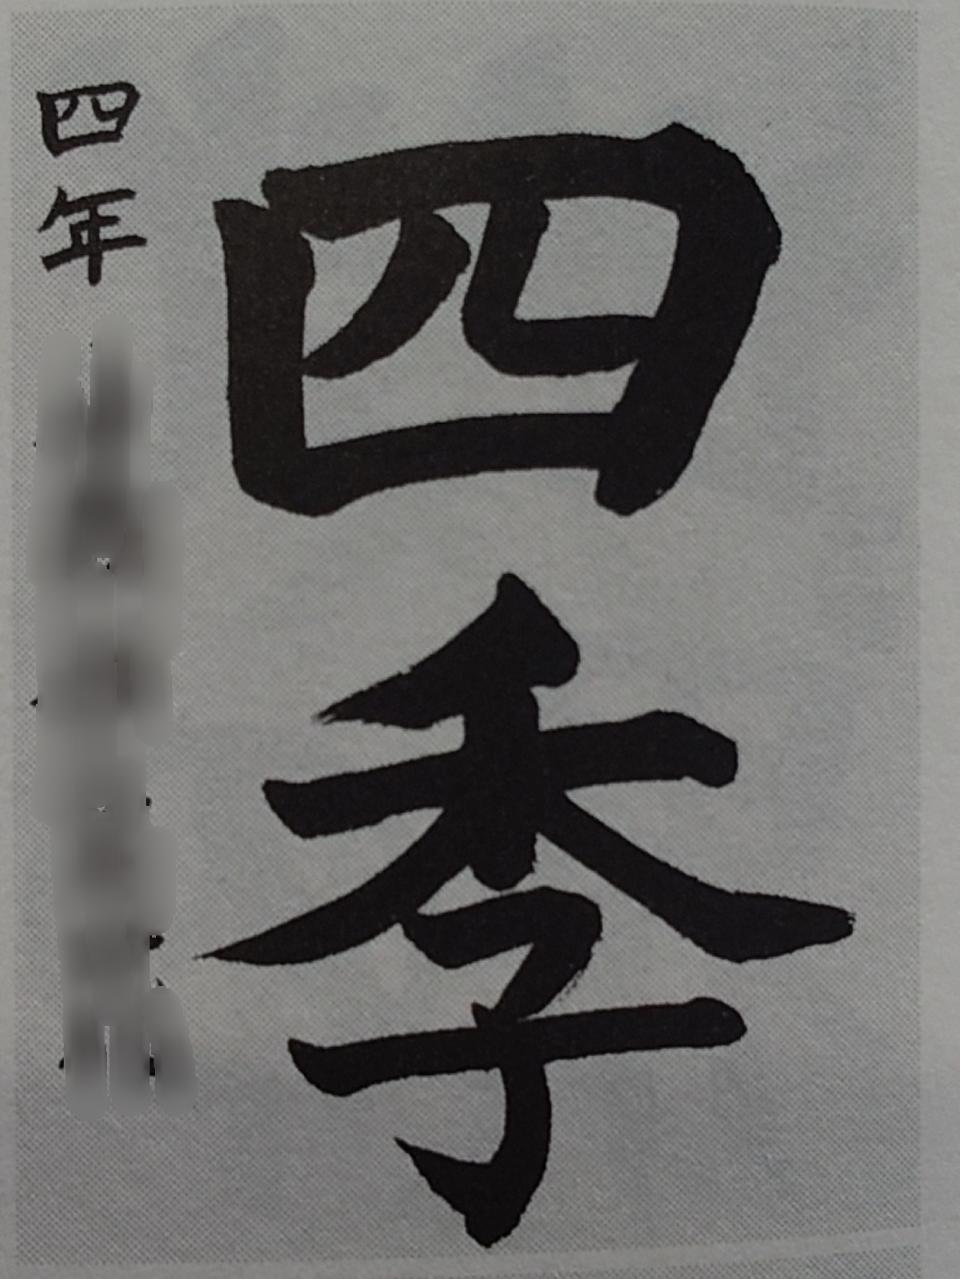 四季
四年